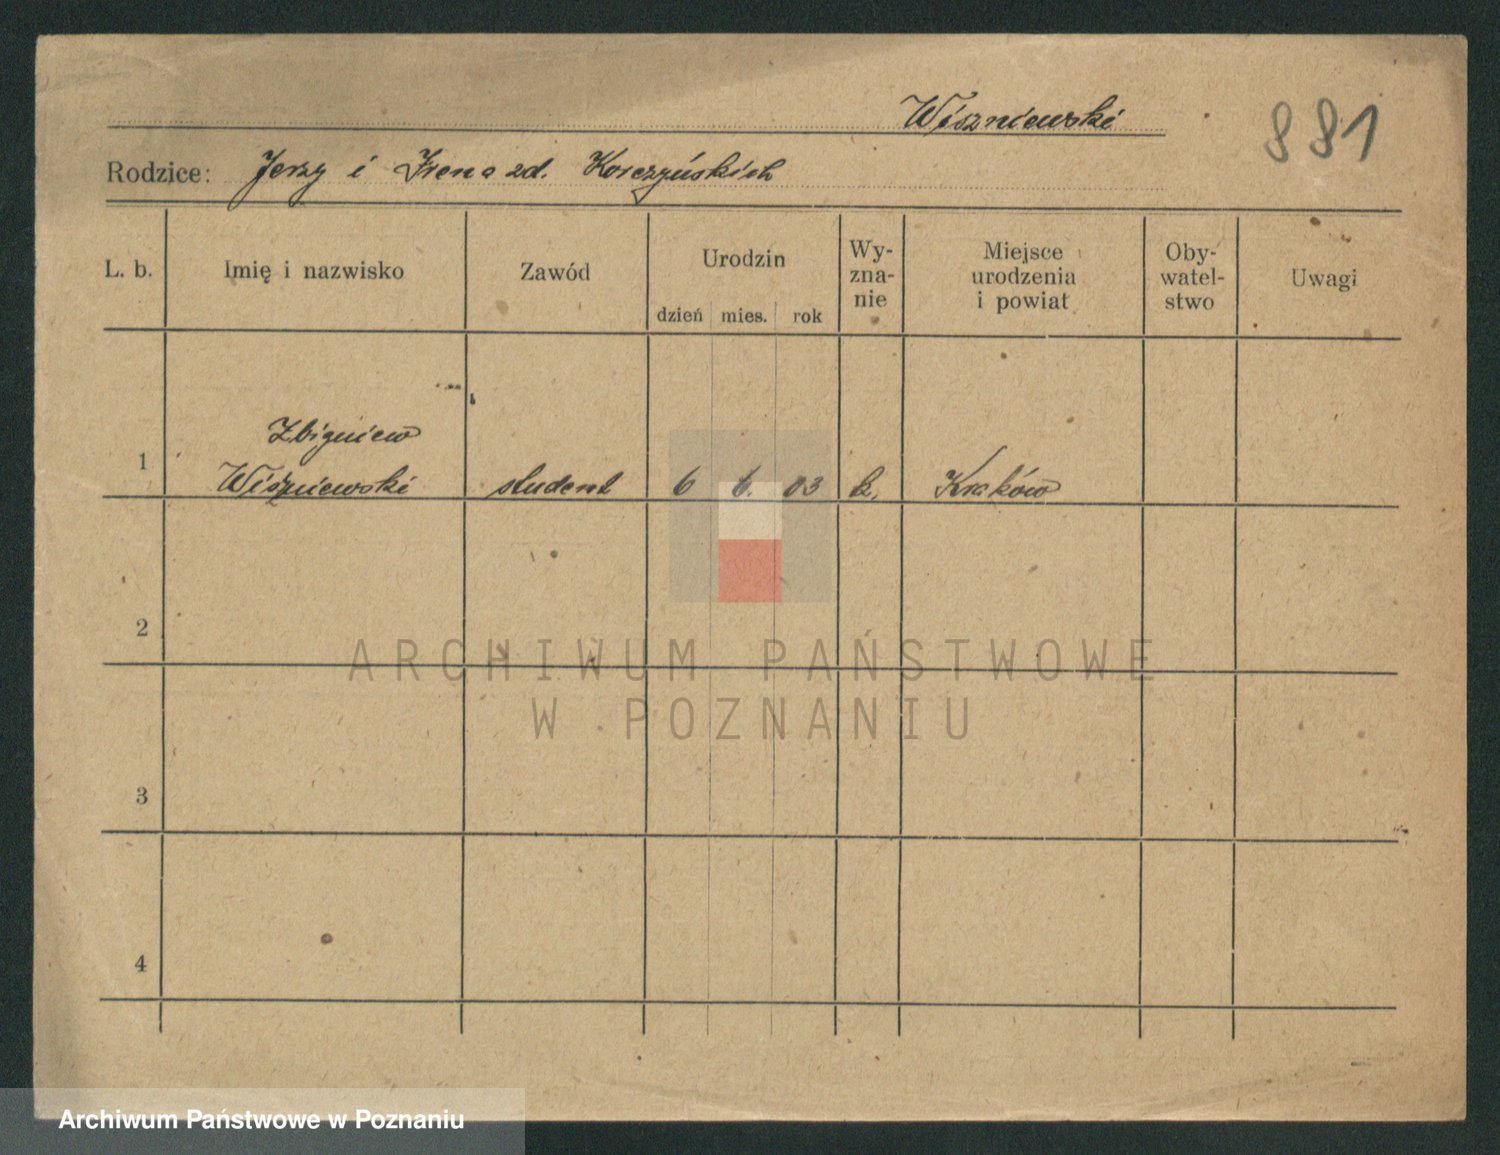 Wiszniewski
881
Rodzice: Jerzy i Irena zd. Korczyńskich
L. b.
Imię i nazwisko
Zawód
Urodzin
dzień mies. rok
Wy-
zna-
nie
Miejsce
urodzenia
i powiat
Oby-
watel-
stwo
Uwagi
Zbigniew
1 Wiszniewski student 6 6. 03 k. Kraków
2
3
4
ARCHIWUM PAŃSTWOWE
W POZNANIU
Archiwum Państwowe w Poznaniu